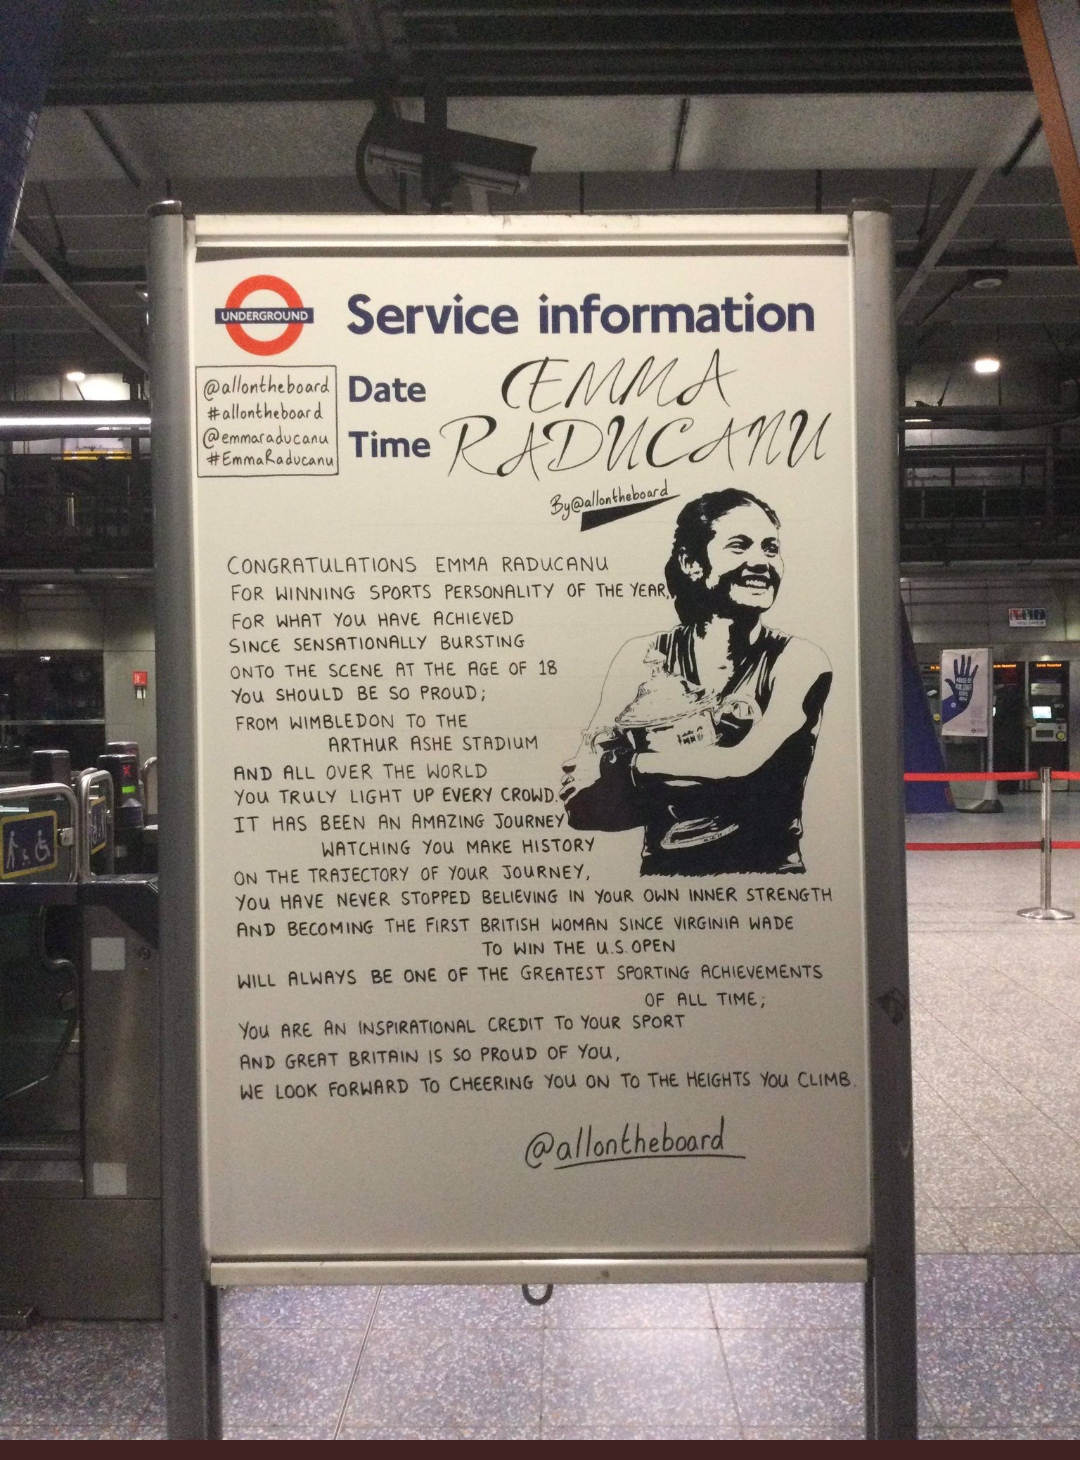 UNDERGROUND
Service information
@allontheboard
#allontheboard
@emmaraducanu
#EmmaRaducanu
Date
Time
EMMA
RADUCANU
By@allontheboard
CONGRATULATIONS EMMA RADUCANU
FOR WINNING SPORTS PERSONALITY OF THE YEAR,
FOR WHAT YOU HAVE ACHIEVED
SINCE SENSATIONALLY BURSTING
ONTO THE SCENE AT THE AGE OF 18
YOU SHOULD BE SO PROUD;
FROM WIMBLEDON TO THE
ARTHUR ASHE STADIUM
AND ALL OVER THE WORLD
YOU TRULY LIGHT UP EVERY CROWD.
IT HAS BEEN AN AMAZING JOURNEY
WATCHING YOU MAKE HISTORY
ON THE TRAJECTORY OF YOUR JOURNEY,
YOU HAVE NEVER STOPPED BELIEVING IN YOUR OWN INNER STRENGTH
AND BECOMING THE FIRST BRITISH WOMAN SINCE VIRGINIA WADE
TO WIN THE U.S. OPEN
WILL ALWAYS BE ONE OF THE GREATEST SPORTING ACHIEVEMENTS
OF ALL TIME;
YOU ARE AN INSPIRATIONAL CREDIT TO YOUR SPORT
AND GREAT BRITAIN IS SO PROUD OF YOU,
WE LOOK FORWARD TO CHEERING YOU ON TO THE HEIGHTS YOU CLIMB.
@allontheboard